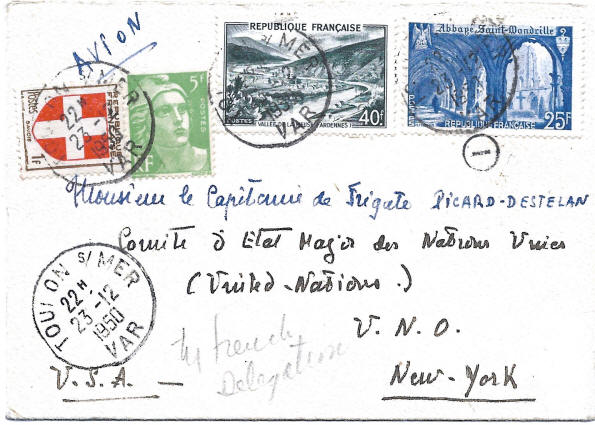 AVION
RÉPUBLIQUE FRANÇAISE
VALLÉE DE LA MEUSE (ARDENNES)
40F
POSTES
Abbaye Saint-Wandrille
RÉPUBLIQUE FRANÇAISE
25F
POSTES
1F
5F
POSTES
RF
Monsieur le Capitaine de Frigate PICARD-DESTELAN
Comité d'Etat Major des Nations Unies
(United-Nations.)
U.N.O.
U.S.A. — New-York
TOULON S/MER
22H
23-12
1950
VAR
French
Delegation